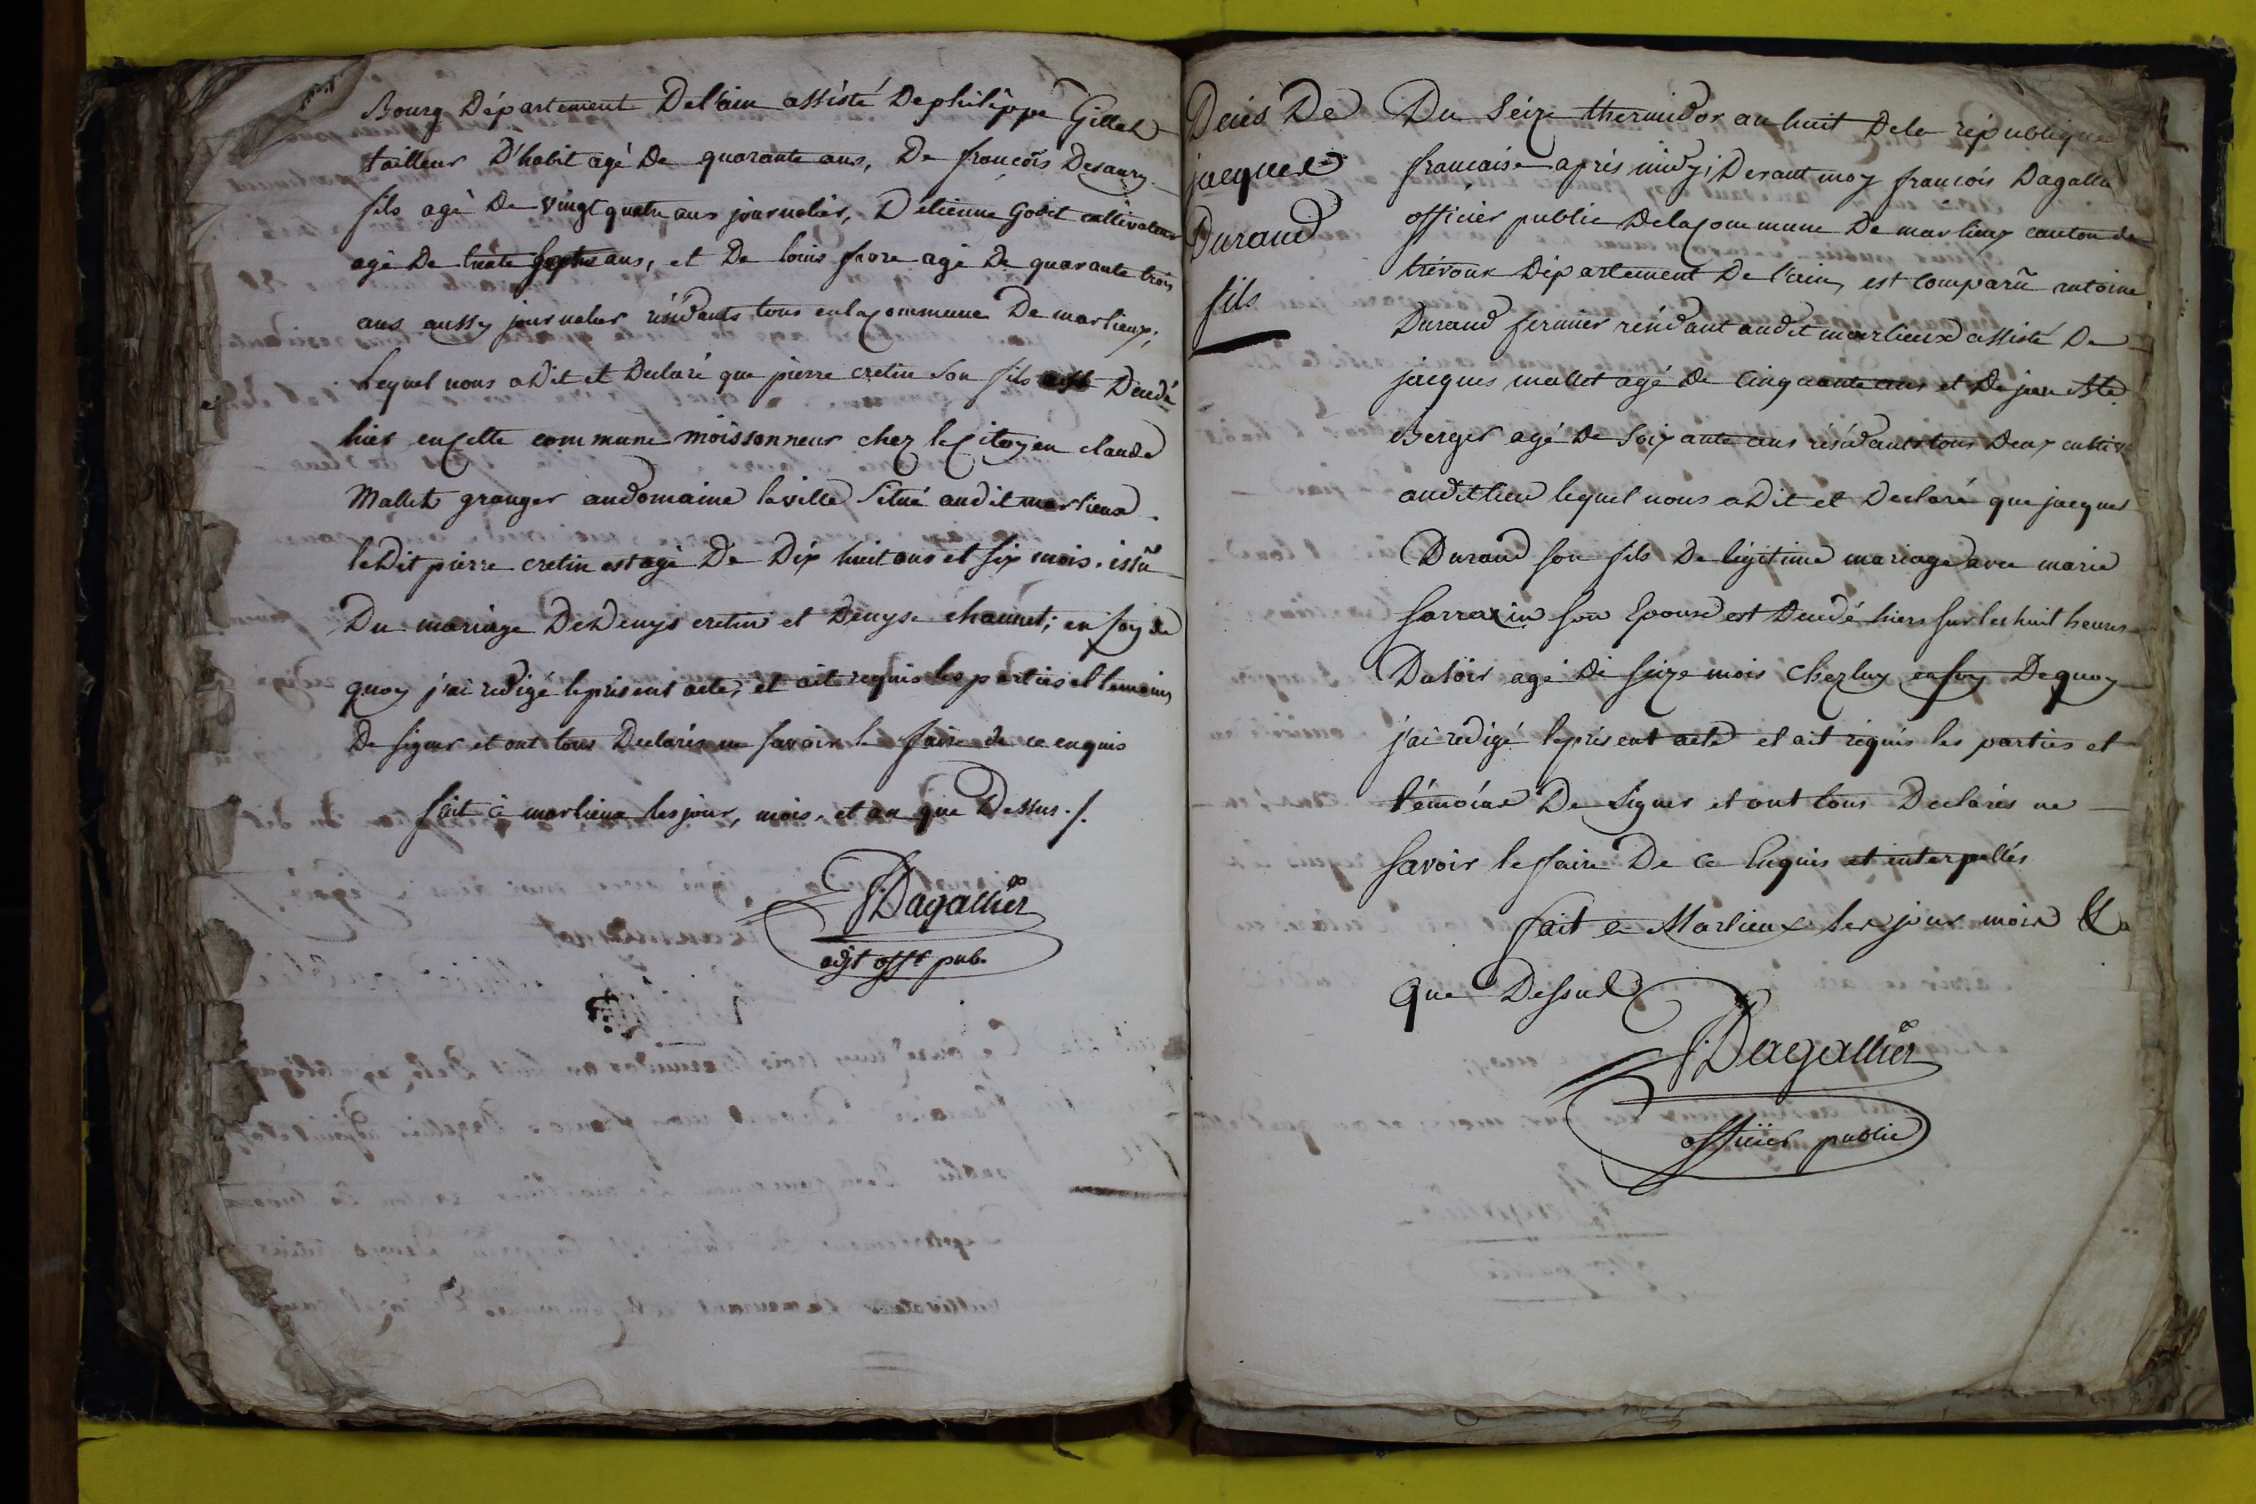 Bourg Département De l'ain assisté De philippe Gillet
tailleur D'habit agé De quarante ans, De francois Desaury
fils agé De vingt quatre ans journalier, D'etienne Godet cultivateur
agé De trente ans, et De louis frore agé De quarante trois
ans aussy journalier résidants tous en la commune De marlieux;
Lequel nous a Dit et Declaré que pierre cretin son fils est Decedé
hier en cette commune moissonneur chez le Citoyen claude
Mallet granger au domaine la ville Situé audit marlieux
le Dit pierre cretin est agé De Dix huit ans et six mois. issu
Du mariage De Denys cretin et Denyse chaunet; en foy de
quoy j'ai redigé le present acte, et ait requis les parties et temoins
De signer et ont tous Declarés ne savoir le faire de ce enquis
fait a marlieux les jour, mois, et an que Dessus ./.
f. Dagallier
adjt offr pub.
Deces De
jacques
Durand
fils
Du Seize thermidor an huit De la république
francaise aprés midy; Devant moy francois Dagallier
officier public De la Commune De marlieux canton de
trévoux Département De l'ain, est comparû antoine
Durand fermier résidant audit marlieux assisté De
jacques mallet agé De Cinquante ans et De jean Bte
Berger agé De Soixante ans résidants tous Deux cultivr
audit lieu lequel nous a Dit et Declaré que jacques
Durand son fils De légitime mariage avec marie
sarrazin son Epouse est Decedé hiers sur les huit heures
Du soir agé De seize mois chez luy en foy De quoy
j'ai redigé le present acte et ait requis les parties et
témoins De Signer et ont tous Declarés ne
savoir le faire De ce Enquis et interpellés
fait a Marlieux les jour mois &
que Dessus
f. Dagallier
officier public